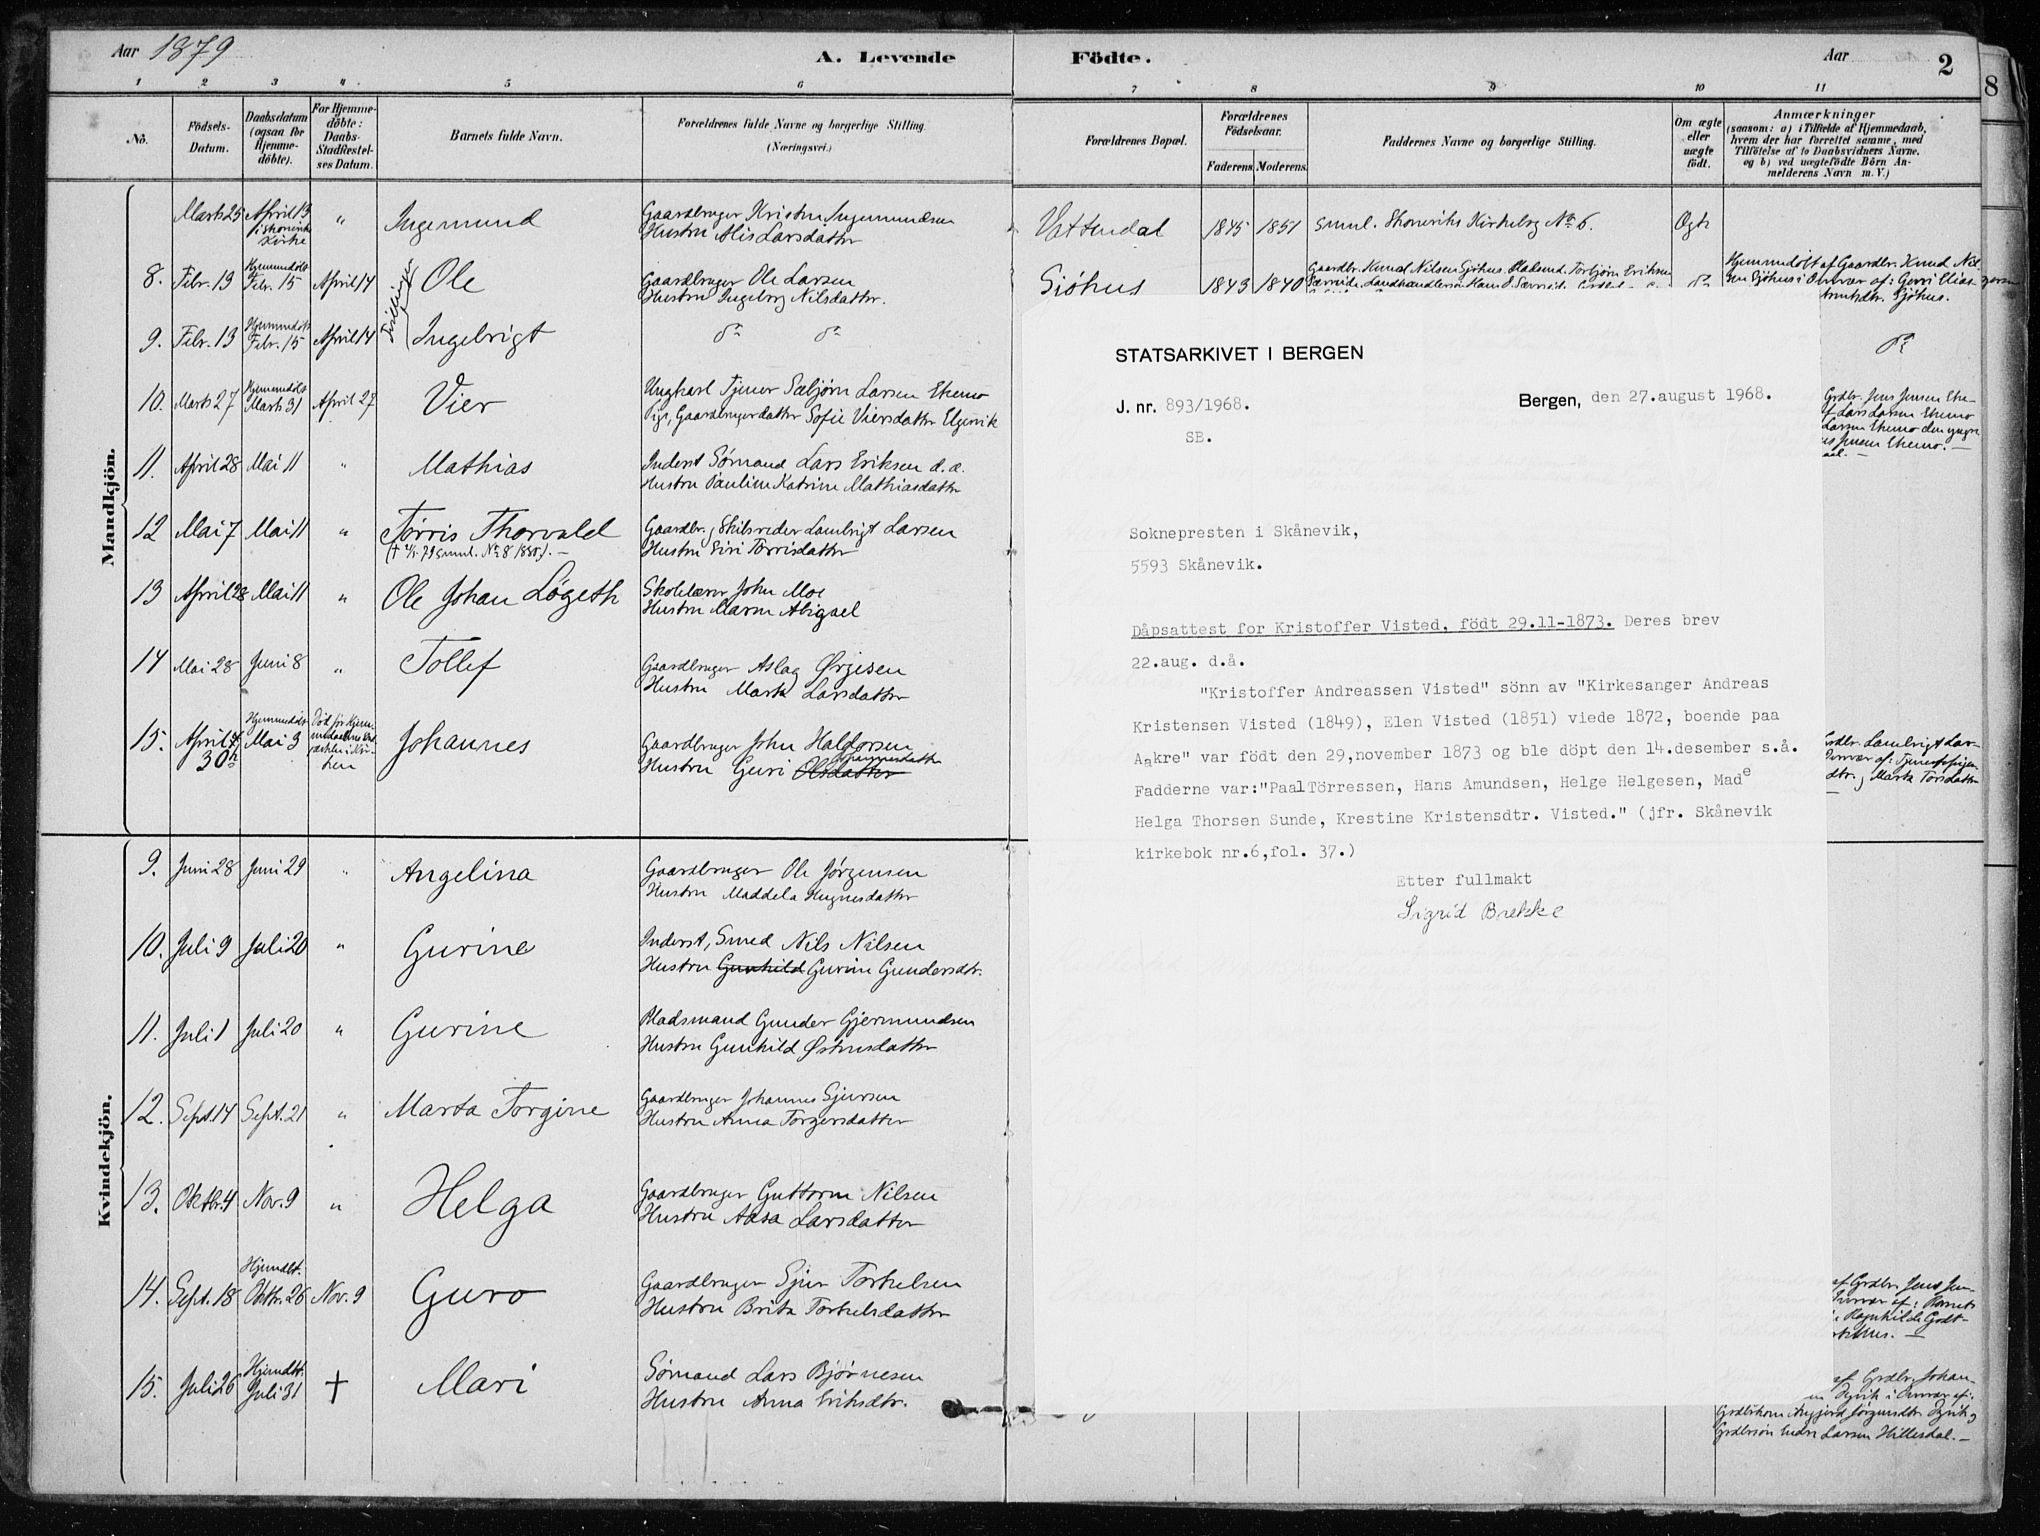 Aar 1879
A. Levende
1 2 3 4 5 6
No.
Födsels-Datum.
Daabsdatum (ogsaa for Hjemme-döbte).
For Hjemme-döbte: Daabs-Stadfæstel-ses Datum.
Barnets fulde Navn.
Forældrenes fulde Navne og borgerlige Stilling.
(Næringsvei.)
Mandkjön.
Marts 25 April 13 " Ingemund Gaardbruger Kristen Ingemundsen
Kirke Hustru Alis Larsdatter
8. Febr. 13 Hjemmedöbt Febr. 15 April 14 Ole Gaardbruger Ole Larsen
Hustru Ingeborg Nilsdatter.
Tvillinger
9. Febr. 13 Hjemmedöbt Febr. 15 April 14 Ingebrigt do do
10. Marts 27 Hjemmedöbt Marts 31 April 27 Vier Ungkarl Tjener Sæbjørn Larsen Ekemo
Pige, Gaardbrugerdatter Sofie Viersdatter Elgervik
11. April 28 Mai 11 " Mathias Inderst Sømand Lars Eriksen d. æ.
Hustru Pauline Katrine Mathiasdatter
12 Mai 7 Mai 11 " Tørris Thorvald Gaardbr. og Skibsreder Lambrigt Larsen
Hustru Siri Torrisdatter
13 April 28 Mai 11 " Ole Johan Løgeth Skolelærer John Moe
Hustru Maren Abigael
14 Mai 28 Juni 8 " Tollef Gaardbruger Aslag Ørjesen
Hustru Marta Larsdatter
15. April 30 Hjemmedöbt Mai 3 Johannes Gaardbruger John Haldorsen
Hustru Guri Olsdatter Johannesdatter
Kvindekjön.
9. Juni 28 Juni 29 " Angelina Gaardbruger Ole Jörgensen
Hustru Maddela Hugnesdatter
10. Juli 9 Juli 20 " Gurine Inderst, Smed Nils Nilsen
Hustru Gunhild Gurine Gundersdtr.
11. Juli 1 Juli 20 " Gurine Pladsmand Gunder Gjermundsen
Hustru Gunhild Østensdatter
12. Sept. 14 Sept. 21 " Marta Torgine Gaardbruger Johannes Sjursen
Hustru Anna Torgersdatter
13. Oktbr. 4 Nov. 9 " Helga Gaardbruger Guttorm Nilsen
Hustru Aasa Larsdatter
14. Sept. 18 Hjemdbt. Oktbr. 26 Nov. 9 Guro Gaardbruger Sjur Torkelsen
Hustru Brita Torkelsdatter
15. Juli 26 Hjemdbt. Juli 31 † Mari Sømand Lars Bjørnesen
Hustru Anna Eriksdtr.
Födte.
Aar
2
8
7 8 9 10 11
Forældrenes Bopæl.
Forældrenes Födselsaar.
Faderens. Moderens.
Faddernes Navne og borgerlige Stilling.
Om ægte eller uægte födt.
Anmærkninger
(saasom: a) i Tilfælde af Hjemmedaab,
hvem der har forrettet samme, med
Tilföielse af to Daabsvidners Navne,
og b) ved uægtefödte Börn An-
melderens Navn m. V.)
Vattendal 1845 1851 Smnl. Skoneviks Kirkebog No 6. Ægte
Sjöhus 1843 1840 Gaardbr. Knud Nilsen Sjöhus. Pladsmd. Torbjörn Eriksen
Hjemmedöbt af Gaardbr. Knud Nil-
sen Sjöhus i Overvær af: Gjerri Elias-
dtr. Sjöhus.
do
STATSARKIVET I BERGEN
J. nr. 893/1968.
SB.
Bergen, den 27.august 1968.
Soknepresten i Skånevik,
5593 Skånevik.
Dåpsattest for Kristoffer Visted, födt 29.11-1873. Deres brev
22.aug. d.å.
"Kristoffer Andreassen Visted" sönn av "Kirkesanger Andreas
Kristensen Visted (1849), Elen Visted (1851) viede 1872, boende paa
Aakre" var födt den 29,november 1873 og ble döpt den 14.desember s.å.
Fadderne var:"Paal Törressen, Hans Amundsen, Helge Helgesen, Made
Helga Thorsen Sunde, Krestine Kristensdtr. Visted." (jfr. Skånevik
kirkebok nr.6,fol. 37.)
Etter fullmakt
Sigrid Brekke
Grdbr. Jens Jensen Eke-
Lars Larsen Ekemo
Larsen Ekemo den yngre
Jensen Ekemo.
Grdbr. Lambrigt Lar-
dtr. og Marta Torsdatter
af Grdbr. Jens Jen-
af Grdbr. Johan-
Larsen Hillesdal.